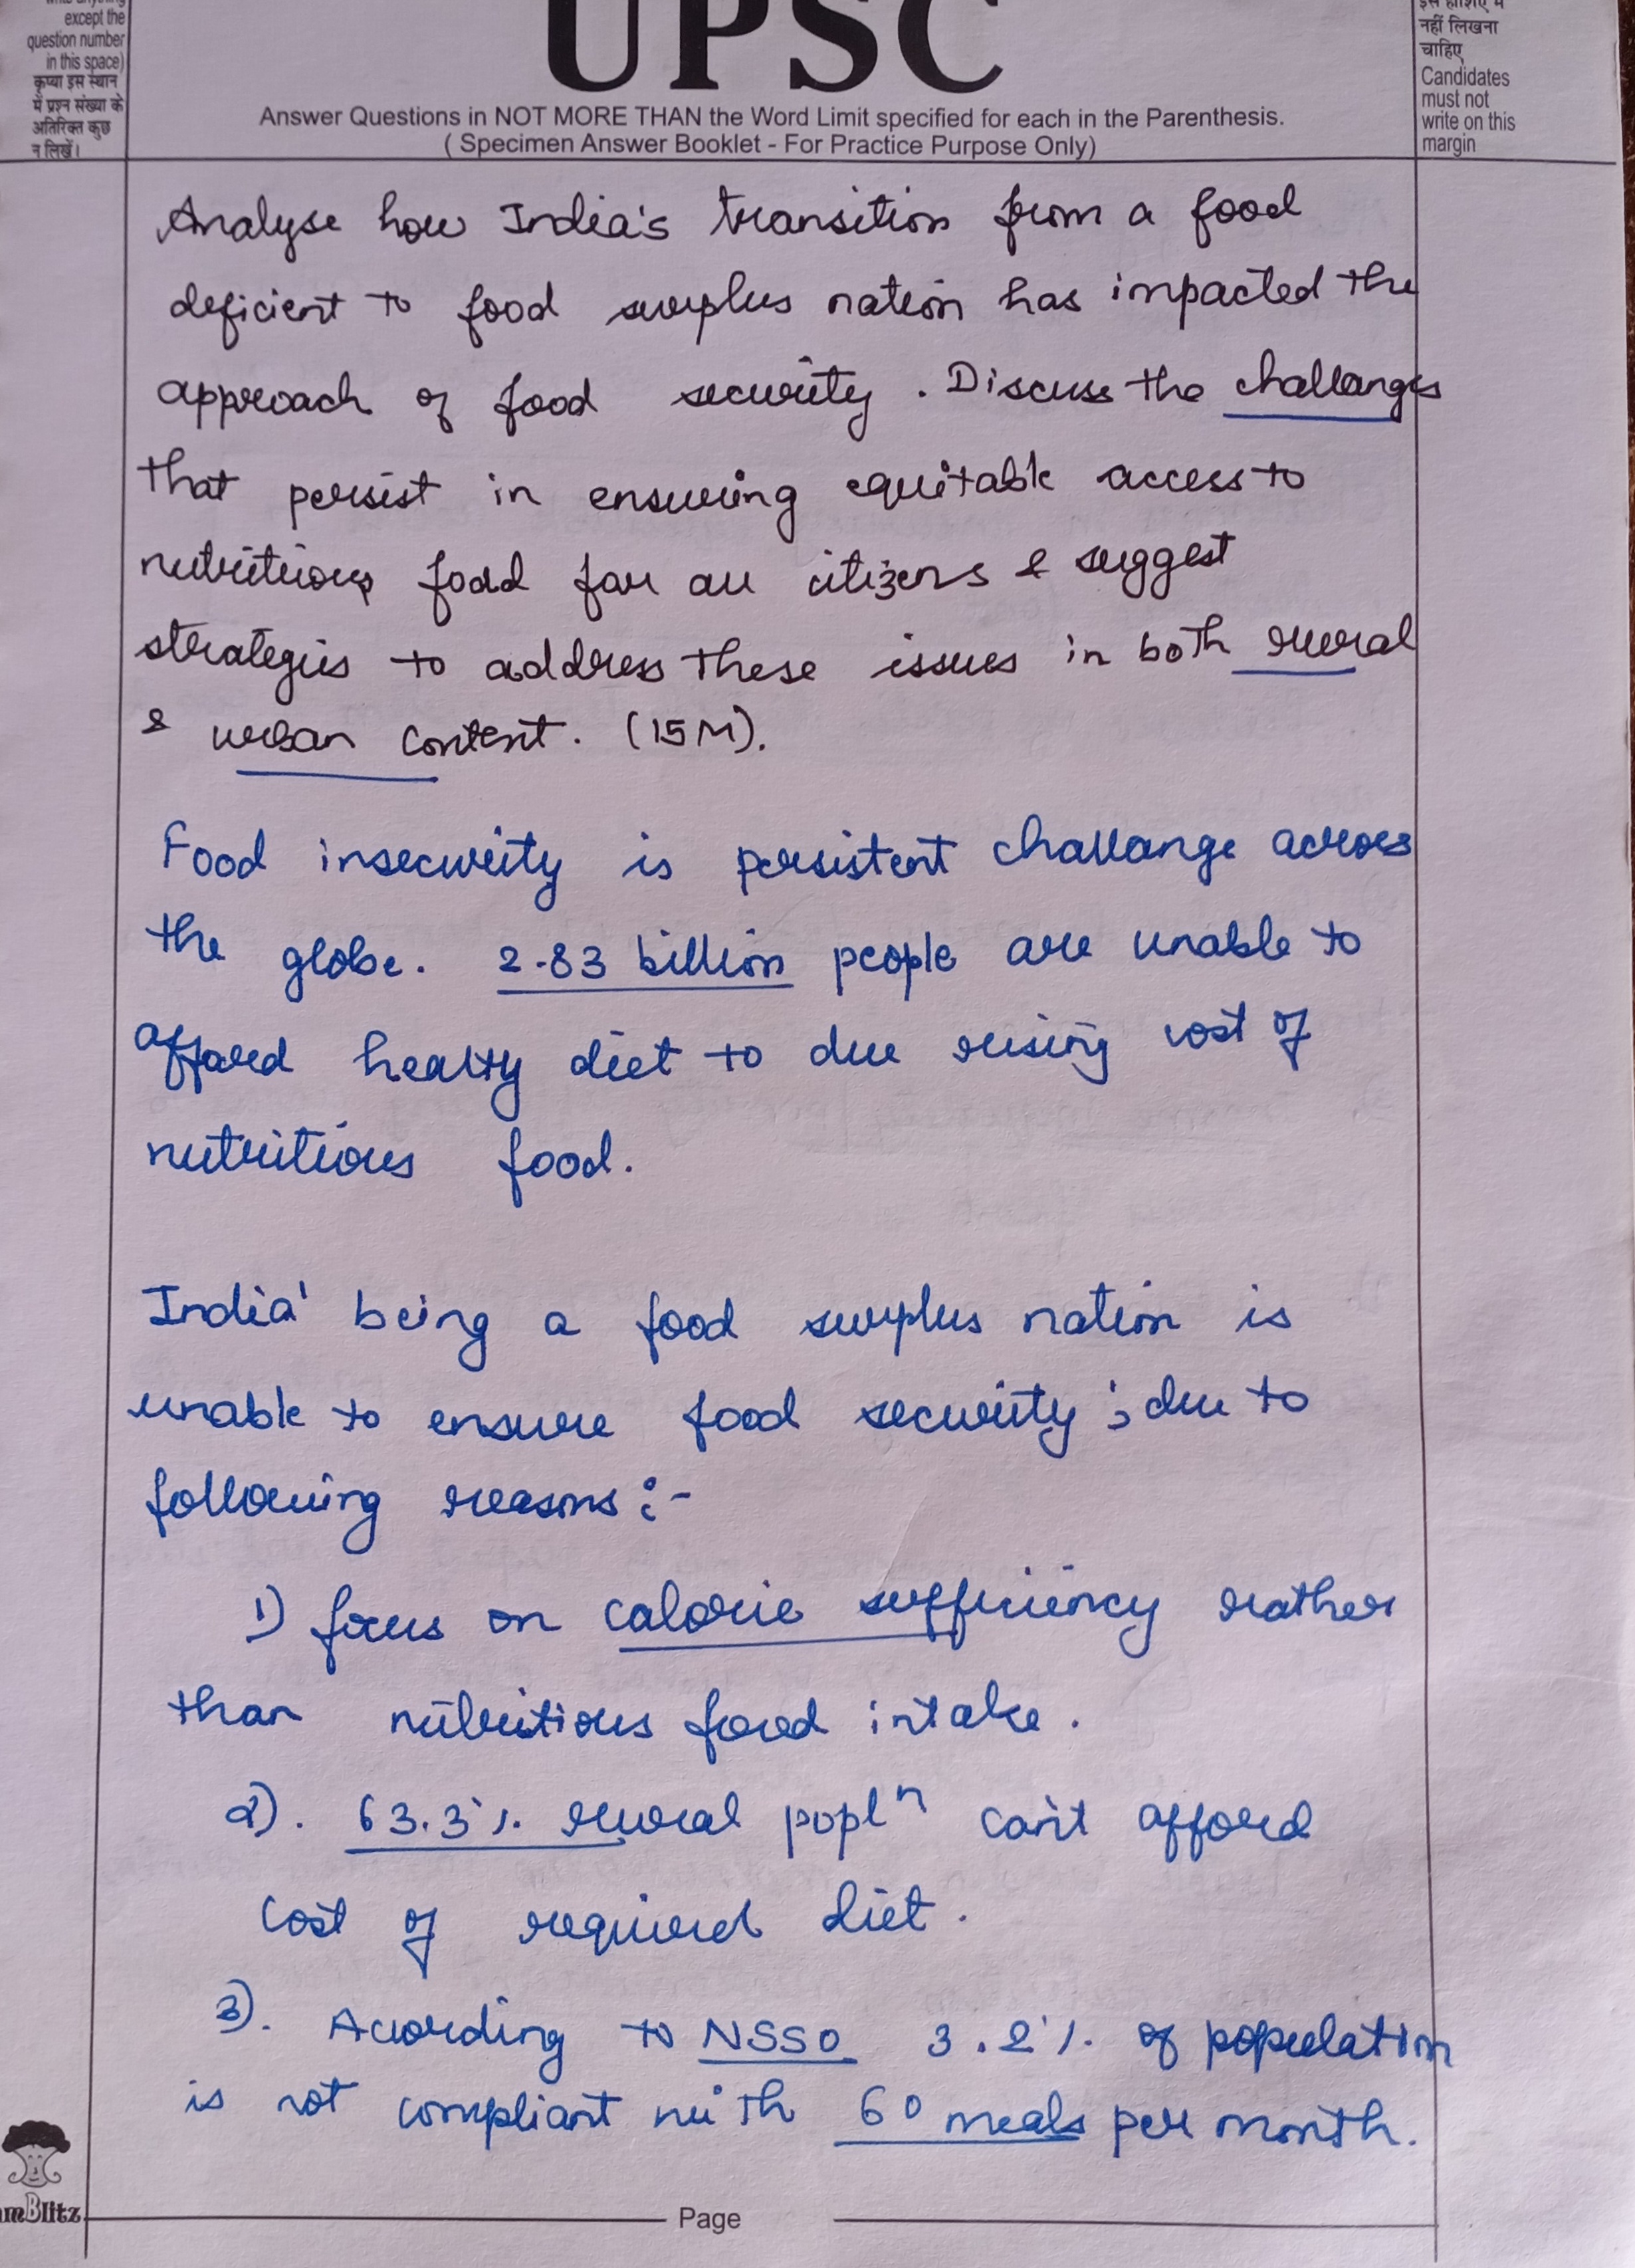 except the
question number
in this space)
कृपया इस स्थान
में प्रश्न संख्या के
अतिरिक्त कुछ
न लिखें।
UPSC
Answer Questions in NOT MORE THAN the Word Limit specified for each in the Parenthesis.
( Specimen Answer Booklet - For Practice Purpose Only)
नहीं लिखना
चाहिए
Candidates
must not
write on this
margin
Analyse how India's transition from a food
deficient to food surplus nation has impacted the
approach of food security. Discuss the challanges
that persist in ensuring equitable access to
nutritious food for all citizens & suggest
strategies to address these issues in both rural
& urban content. (15M).
Food insecurity is persistent challange across
the globe. 2.83 billion people are unable to
afford healty diet to due rising cost of
nutritious food.
India' being a food surplus nation is
unable to ensure food security; due to
following reasons:-
1) focus on calorie sufficiency rather
than nutritious food intake.
2). 63.3%. rural popl^n can't afford
cost of required diet.
3). According to NSSO 3.2%. of population
is not compliant with 60 meals per month.
mBlitz
Page